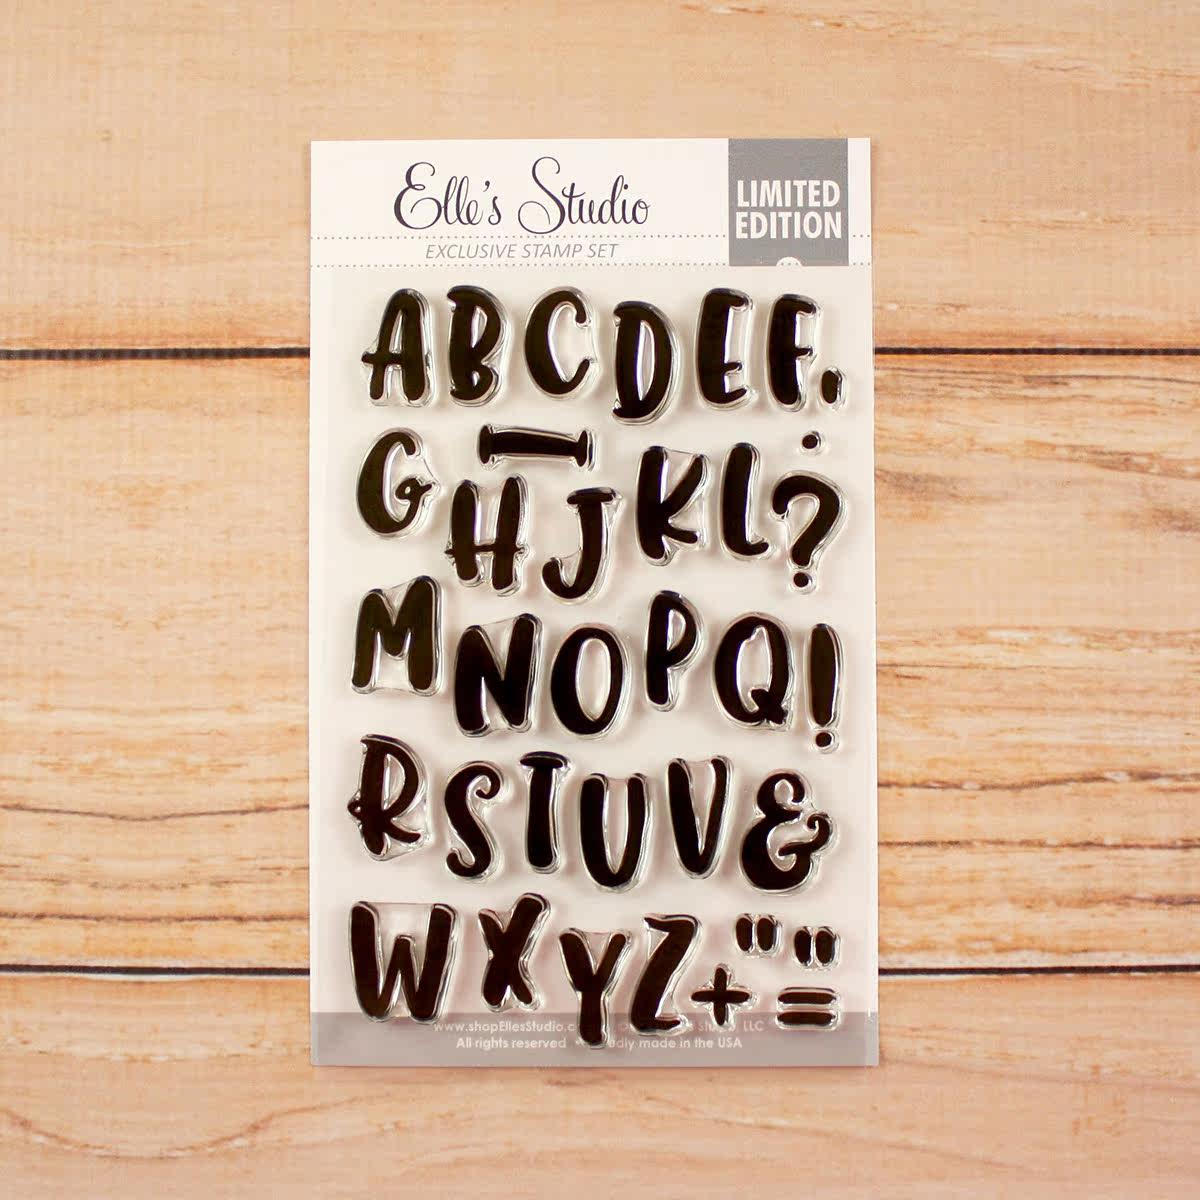 Elle's Studio
LIMITED EDITION
EXCLUSIVE STAMP SET
A B C D E F .
G I H J K L ?
M N O P Q !
R S T U V &
W X Y Z + " " =
www.shopEllesStudio.c Studio, LLC
All rights reserved • made in the USA